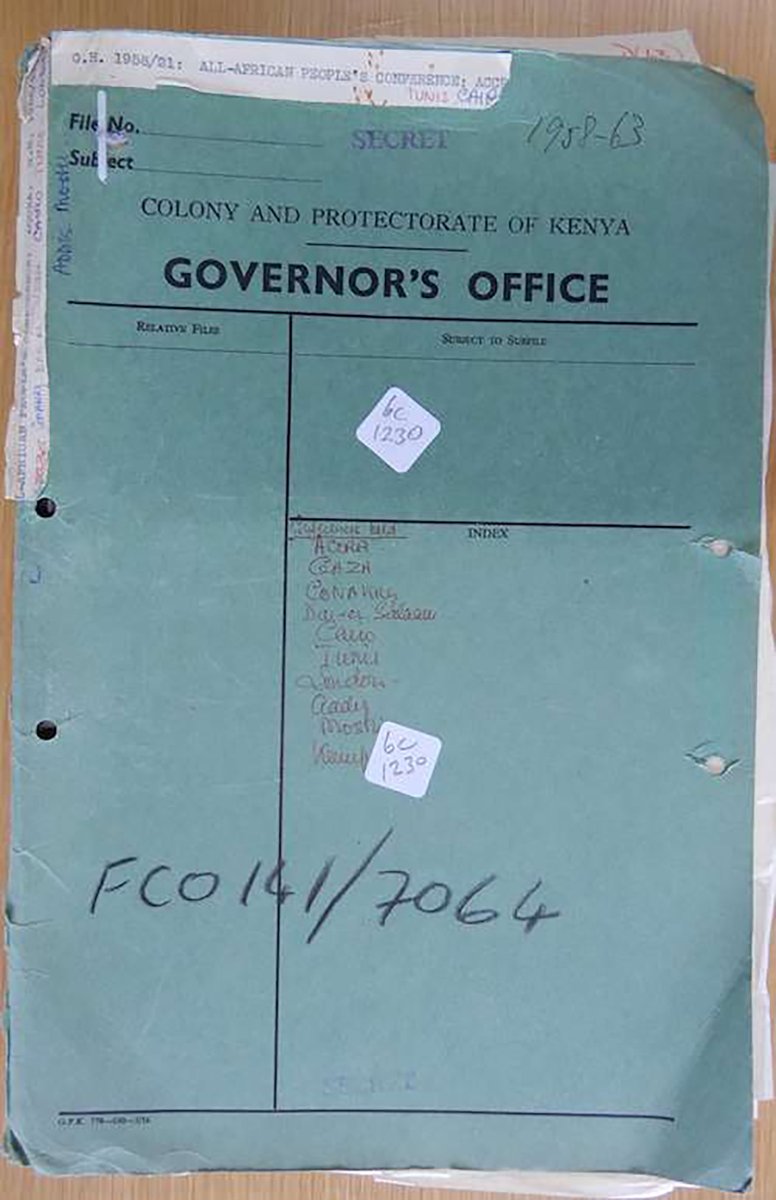 G.H. 1958/21: ALL-AFRICAN PEOPLE'S CONFERENCE: ACCR
TUNIS CAIR
File No.
SECRET
1958-63
Subject
ADDIS MOSHI
COLONY AND PROTECTORATE OF KENYA
GOVERNOR'S OFFICE
RELATIVE FILES
SUBJECT TO SUBFILE
6C
1230
INDEX
ACCRA
GAZA
CONAKRY
Dar-es Salaam
Cairo
TUNIS
London
Addis
MOSHI
Kamp
6C
1230
FCO 141/7064
SECRET